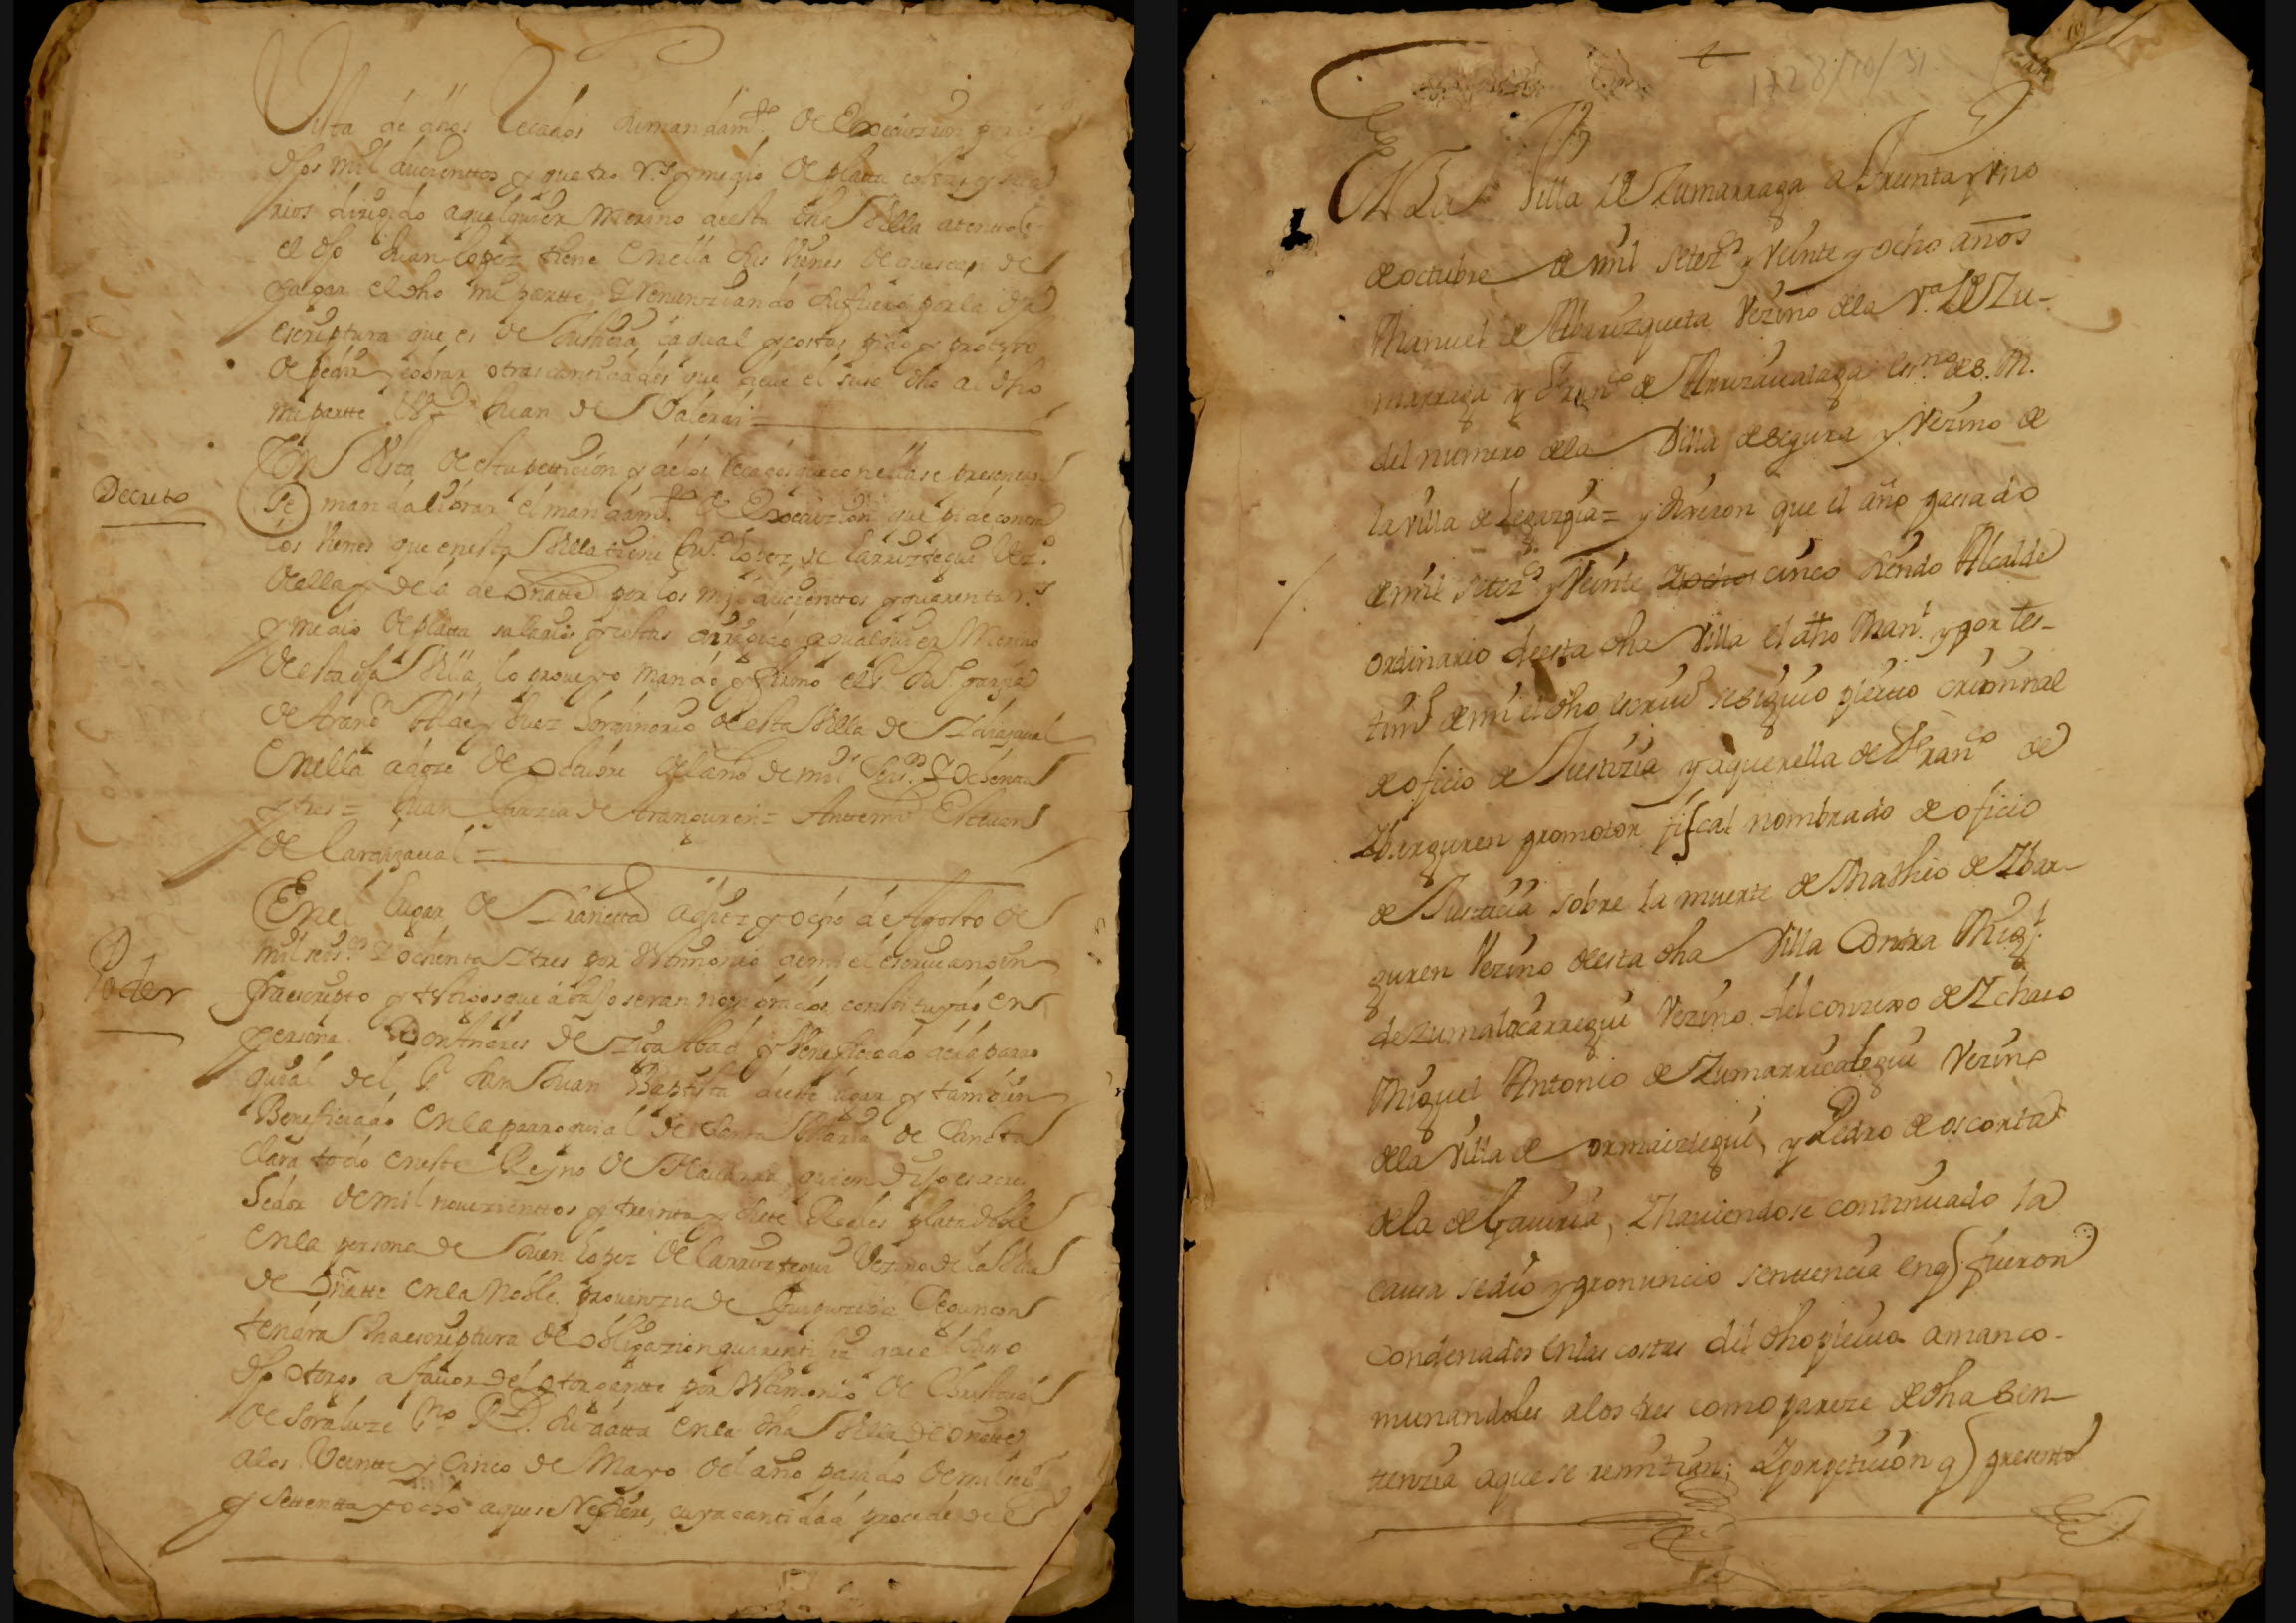 Vista de dhos Recados su mandamto de execuzion por los
dhos mil ducientos y quatro rs y medio de platta costas y sala
rios dirigido a qualquier Merino de esta dha Villa atento
el dho Juan Lopez tiene en ella sus vienes de que se ap de
pagar el dho mi partte, y renunziando su fuero por la dha
escriptura que es de Justicia, la qual y costas pido y protesto
de pedir y cobrar otras cantidades que deve el suso dho a dho
mi partte Juan de
Decreto
En Vista de esta petticion y de los recados que con ella se presentan
Se manda librar el mandamto de execuzion que pide contra
los vienes que en esta Villa tiene Jun Lopez de Larriztegui Vezo
de ella y de la de Oñatte por los mil ducienttos y quarenta rs
y medio de platta salarios y costas dirigido a qualquier Merino
de esta dha Villa, lo proveyo mando y firmo el Sr Jun garzia
de Arangn Alcde y Juez hordinario de esta Villa de
en ella a doze de octubre del año de mil seiscos y ochenta
y tres = Juan Garzia de Aranguren = Antte mi Estevan
de Largazaval =
Poder
En el Lugar de Iranetta a diez y ocho de Agosto de
mil seiscos y ochenta y tres por testimonio de mi el escrivano in
fraescripto y testigos que abajo seran nombrados constituydo en
persona Don Andres de Abad y Beneficiado de la parro
quial del Sr San Juan Baptista de este lugar y tambien
Beneficiado en la parroquial de Santa Maria de
todo en este Reyno de Navarra quien dijo es acre
hedor de mil novezienttos y treinta y siete Reales plata doble
en la persona de Juan Lopez de Larriztegui Vezino de la Villa
de Oñatte en la Noble provinzia de Guipuzcoa segun con
tendra dha escriptura de obligazion quarentixia que el suso
dho otorgo a favor del otorgantte por testimonio de Christoval
de Soraluze su datta en la dha Villa de Oñatte
a los Veintte y cinco de Mayo del año pasado de mil seisos
y settentta y ocho a que se refiere, cuya cantidad procede de
1728/10/31
En la Villa de Zumarraga a treinta y uno
de octubre de mil setezos y Veinte y ocho años
Manuel de Albarizqueta Vezino de la Va de Zu-
marraga y Franco de Arrizavalaga esno de S. M.
del numero de la Villa de Segura y Vezino de
la villa de Legazpia = y dixeron que el año passado
de mil setezos y Veinte y ocho cinco siendo Alcalde
ordinario de esta dha Villa el dho Manl y por tes-
timo de mi el dho escrivo se siguio pleito criminal
de oficio de Justizia y a querella de Franco de
Ybarguren promotor fiscal nombrado de oficio
de Justicia sobre la muerte de Matheo de Ybar-
guren Vezino de esta dha Villa Contra Migl
de Zumalacarregui Vezino del conzexo de Ychaso
Miguel Antonio de Zumarricalegui Vezino
de la Villa de ormaiztegui, y Pedro de oscorta
de la de Gaviria, Y haviendose continuado la
causa se dio y pronuncio senttencia en q fueron
Condenados en las costas del dho pleito a manco-
munandoles a los tres como pareze de dha Sen-
tenzia a que se remitian; Y por peticion q presento